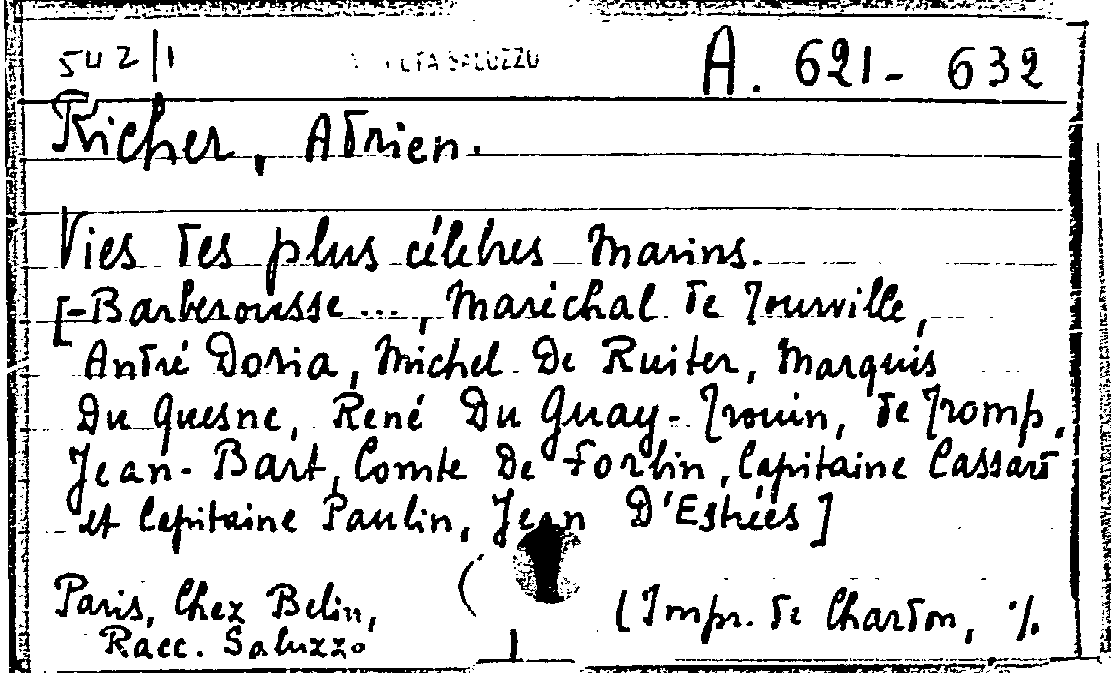 542/1 SALUZZO A. 621- 632
Richer, Adrien.
Vies des plus célebres Marins.
[-Barberousse ..., Maréchal de Tourville,
André Doria, Michel De Ruiter, Marquis
Du Quesne, René Du Guay-Trouin, de Tromp,
Jean-Bart, Comte De Forbin, Capitaine Cassard
et Capitaine Paulin, Jean D'Estrées]
Paris, Chez Belin, ( (Impr. de Chardon, %
Racc. Saluzzo